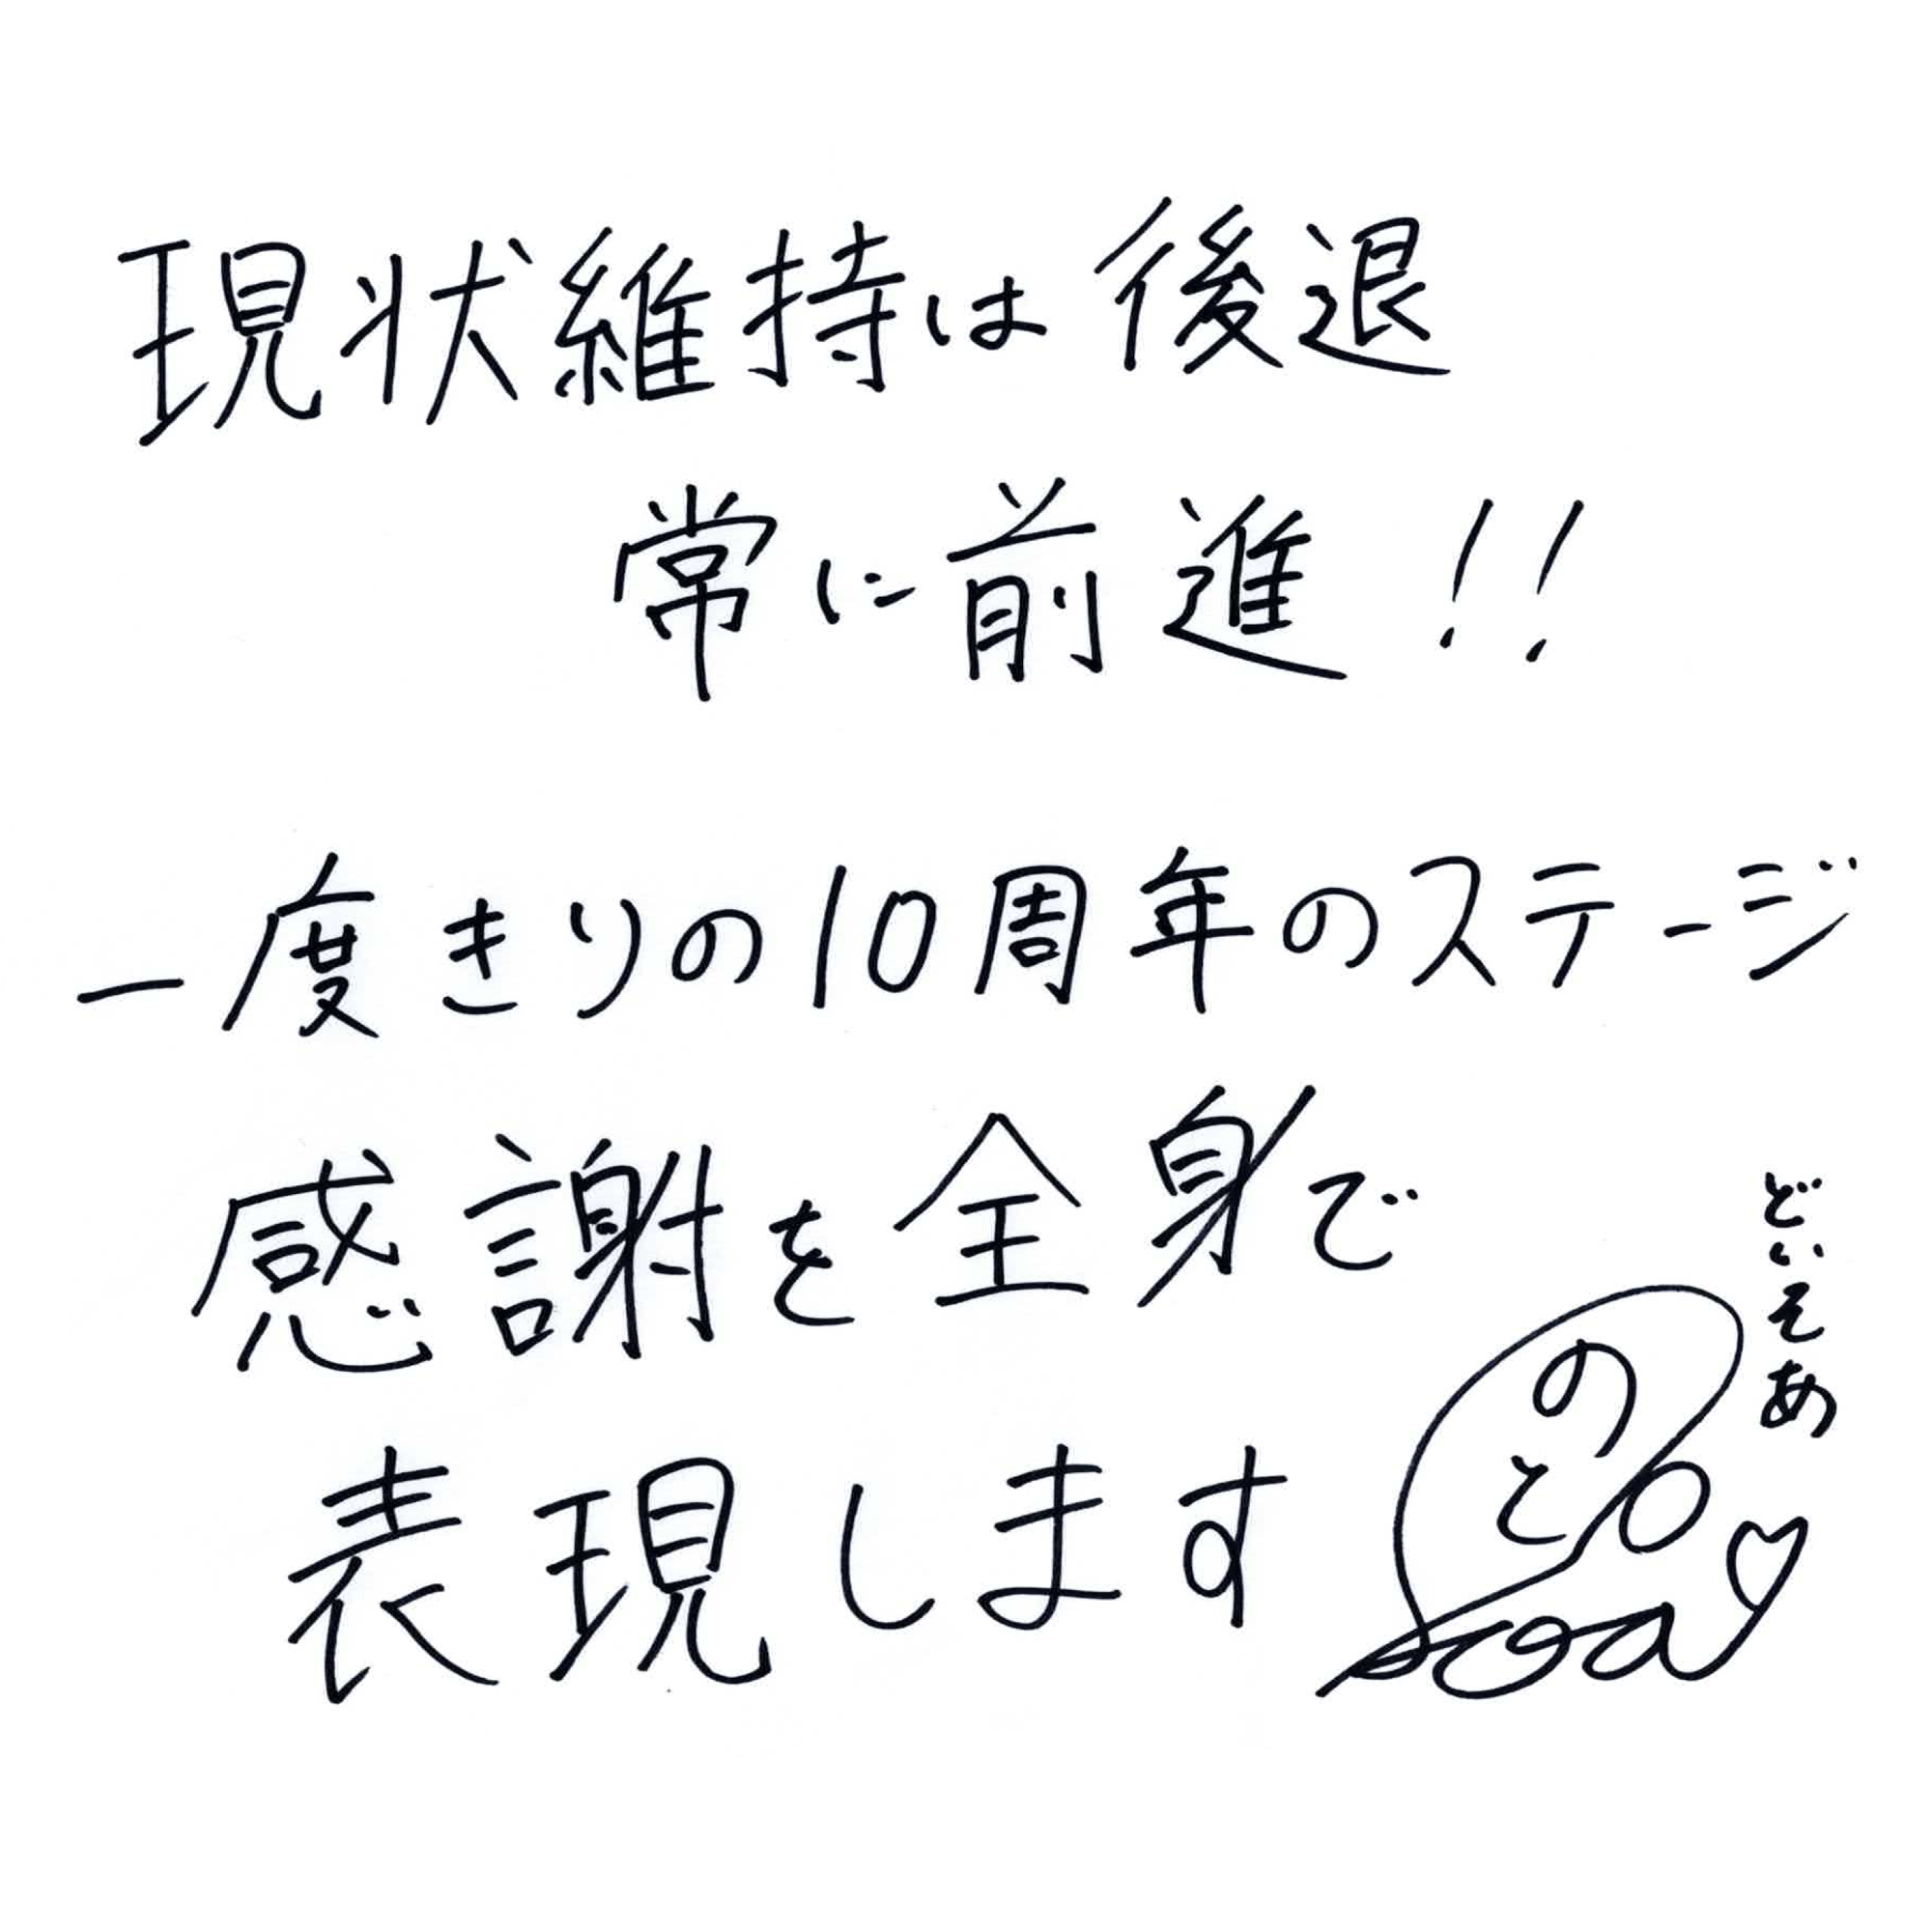 現状維持は後退
常に前進!!
一度きりの10周年のステージ
感謝を全身で
表現します
どいそあ